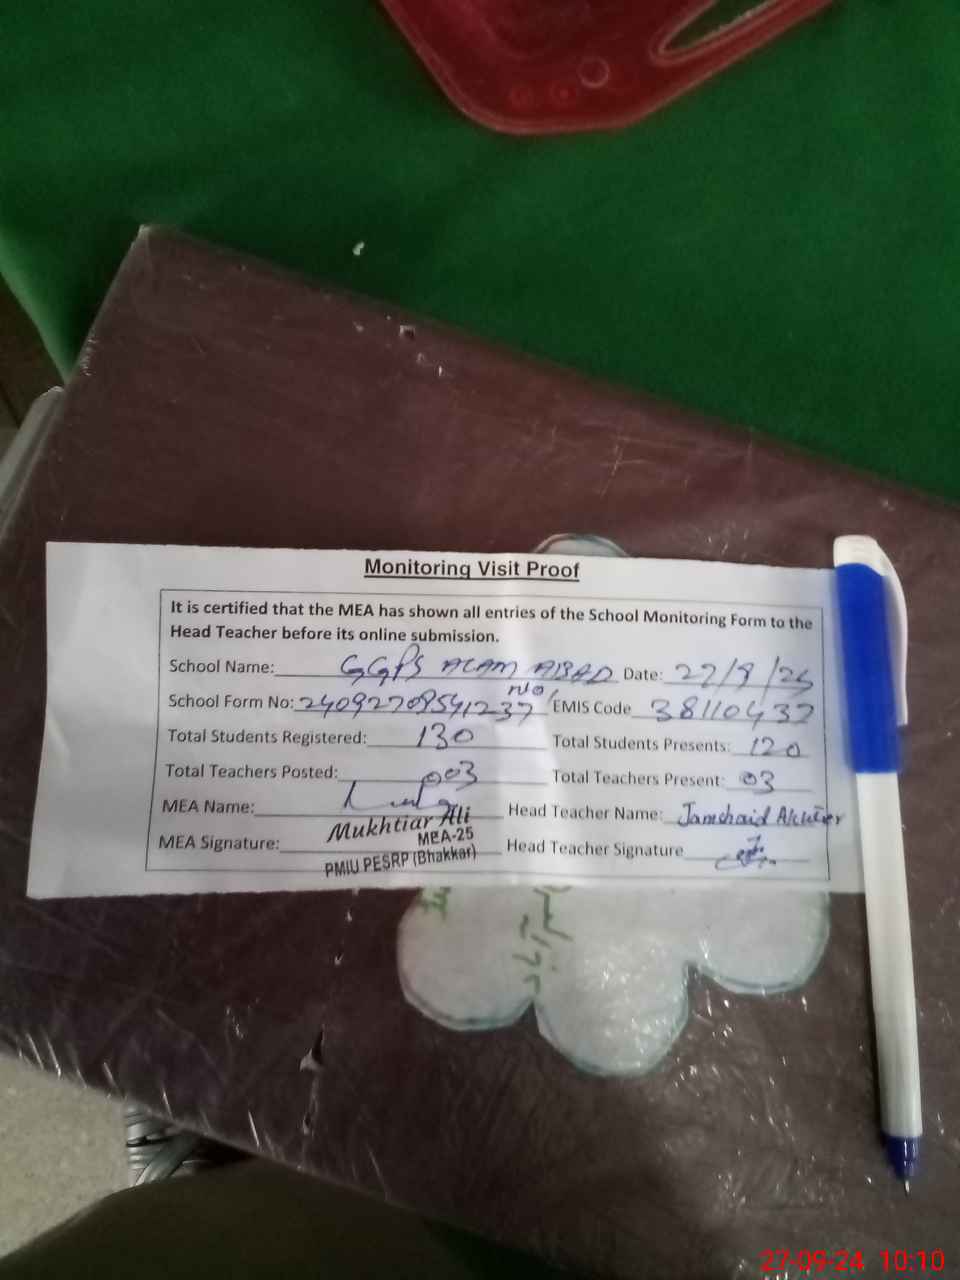 Monitoring Visit Proof
It is certified that the MEA has shown all entries of the School Monitoring Form to the
Head Teacher before its online submission.
School Name: GGPS ALAM ABAD Date: 27/9/24
School Form No: 24092708541237 EMIS Code 38110437
Total Students Registered: 130 Total Students Presents: 120
Total Teachers Posted: 003 Total Teachers Present: 03
MEA Name: Head Teacher Name: Jamshaid Akhter
Mukhtiar Ali
MEA-25
MEA Signature: Head Teacher Signature
PMIU PESRP (Bhakkar)
27-09-24 10:10